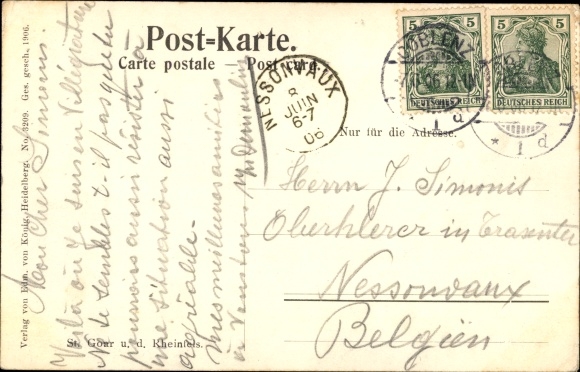 Post-Karte.
Carte postale — Post card.
Nur für die Adresse.
Herrn J. Simonis
Oberhlerer in Traxenter
Nessonvaux
Belgien
Mon cher Simonis.
Voilà où je suis en Villégiature
Ne te semble t-il pas que tu
pourrais aussi
une situation aussi
agréable.
mes meilleures amitiés
St. Goar u. d. Rheinfels.
Verlag von Edm. von König, Heidelberg. No. 3299. Ges. gesch. 1906.
NESSONVAUX
8
JUIN
6-7
06
COBLENZ
* 1 d
5 5
DEUTSCHES REICH
5 5
DEUTSCHES REICH